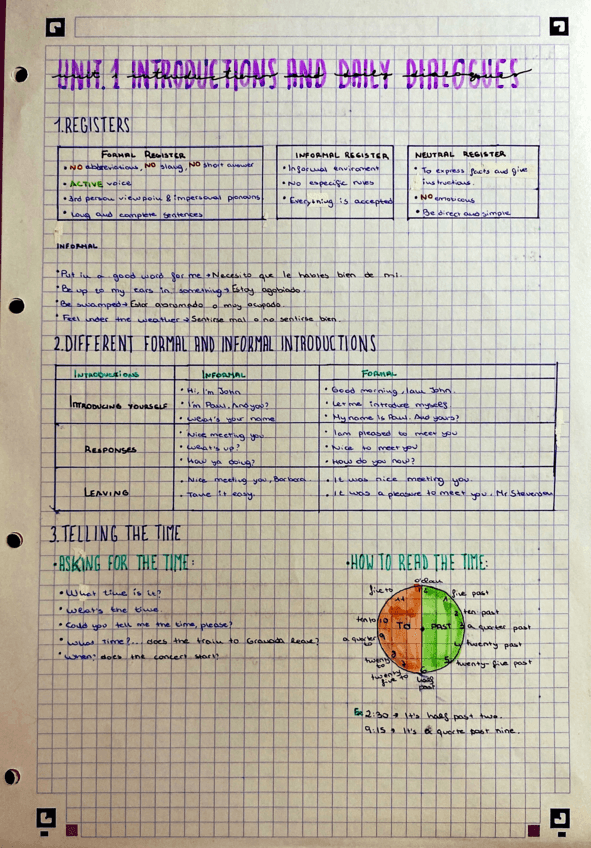 UNIT.1 INTRODUCTIONS AND DAILY DIALOGUES
unit.1 introductions and daily dialogues
1.REGISTERS
FORMAL REGISTER
• NO abbreviations, NO slang, NO short answer
• ACTIVE voice
• 3rd person viewpoint & impersonal pronouns.
• Long and complete sentences
INFORMAL REGISTER
• Informal enviroment
• No especific rules
• Everything is accepted
NEUTRAL REGISTER
• To express facts and give
instructions.
• NO emoticons
• Be direct and simple
INFORMAL
• Put in a good word for me → Necesito que le hables bien de mi.
• Be up to my ears in something → Estoy agobiado.
• Be swamped → Estar abrumado o muy ocupado.
• Feel under the weather → Sentirse mal o no sentirse bien.
2.DIFFERENT FORMAL AND INFORMAL INTRODUCTIONS
INTRODUCTIONS INFORMAL FORMAL
INTRODUCING YOURSELF
• Hi, I'm John
• I'm Paul. And you?
• What's your name
• Good morning, I am John.
• Let me introduce myself
• My name is Paul. And yours?
RESPONSES
• Nice meeting you
• What's up?
• How ya doing?
• I am pleased to meet you
• Nice to meet you
• How do you now?
LEAVING
• Nice meeting you, Barbara.
• Take it easy.
• It was nice meeting you.
• It was a pleasure to meet you, Mr Stevenson
3.TELLING THE TIME
• ASKING FOR THE TIME:
• What time is it?
• What's the time.
• Could you tell me the time, please?
• What time?... does the train to Granada leave?
• When? does the concert start?
• HOW TO READ THE TIME:
o'clock
five to
five past
ten to
ten past
a quarter to
a quarter past
twenty to
twenty past
twenty five to
twenty-five past
half past
TO PAST
12 1 2 3 4 5 6 7 8 9 10 11
Ex 2:30 → It's half past two.
9:15 → It's a quarte past nine.